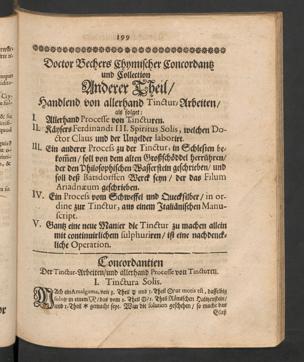 199
Doctor Bechers Chymischer Concordantz
und Collection
Anderer Theil/
Handlend von allerhand Tinctur-Arbeiten/
als folget:
I. Allerhand Processe von Tincturen.
II. Käysers Ferdinandi III. Spiritus Solis, welchen Do-
ctor Claus und der Ungelder laborirt.
III. Ein anderer Proceß zu der Tinctur, in Schlesien be-
kommen/ soll von dem alten Großschöddel herrühren/
der den Philosophischen Wasserstein geschrieben/ und
soll deß Batsdorffen Werck seyn/ der das Filum
Ariadnæum geschrieben.
IV. Ein Proceß vom Schweffel und Quecksilber/ in or-
dine zur Tinctur, aus einem Italiänischen Manu-
script.
V. Gantz eine neue Manier die Tinctur zu machen allein
mit continuirlichem sulphuriren/ ist eine nachdenck-
liche Operation.
Concordantien
Der Tinctur-Arbeiten/und allerhand Processe von Tincturen.
I. Tinctura Solis.
Mach ein Amalgama, von
und 1. Theil gemacht sept. Wan die solution geschehen/ so mache das
Glaß